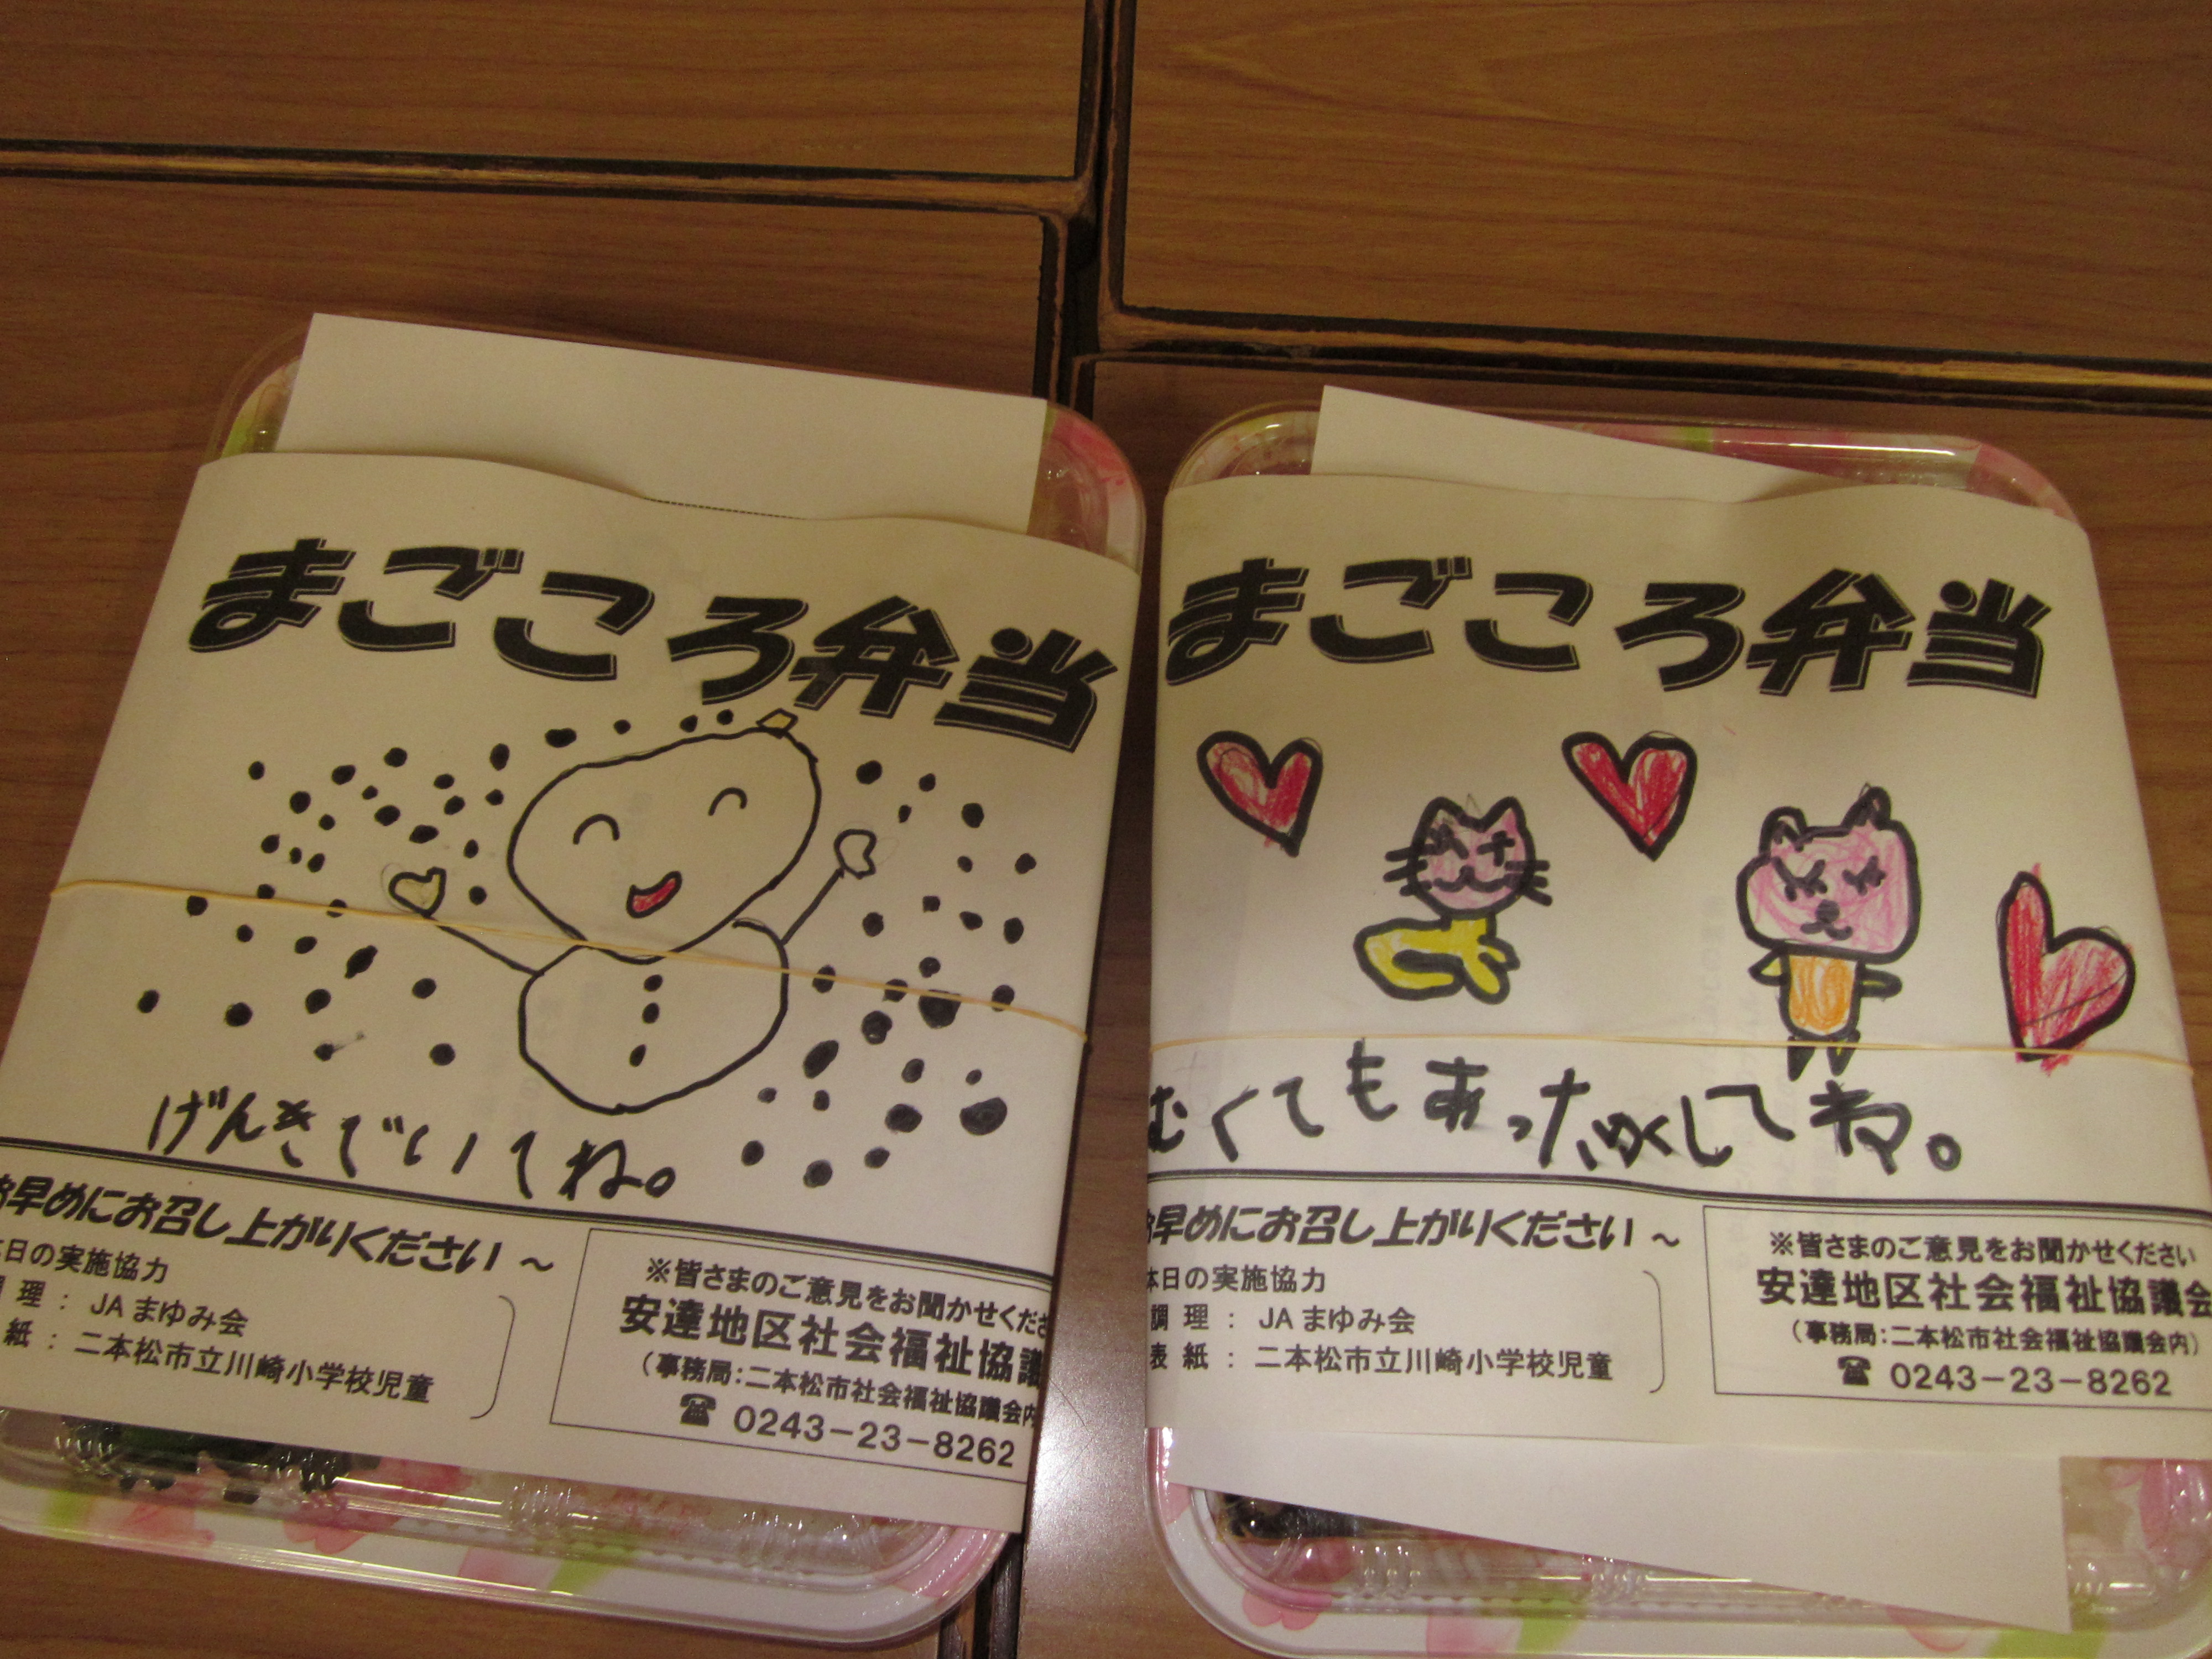 まごころ弁当
げんきでいてね。
お早めにお召し上がりください ～
本日の実施協力
理 : JA まゆみ会
紙 : 二本松市立川崎小学校児童
※皆さまのご意見をお聞かせくださ
安達地区社会福祉協議
(事務局:二本松市社会福祉協議会内
☎ 0243-23-8262
まごころ弁当
むくてもあったかくしてね。
お早めにお召し上がりください ～
本日の実施協力
調 理 : JA まゆみ会
表 紙 : 二本松市立川崎小学校児童
※皆さまのご意見をお聞かせください
安達地区社会福祉協議会
(事務局:二本松市社会福祉協議会内)
☎ 0243-23-8262